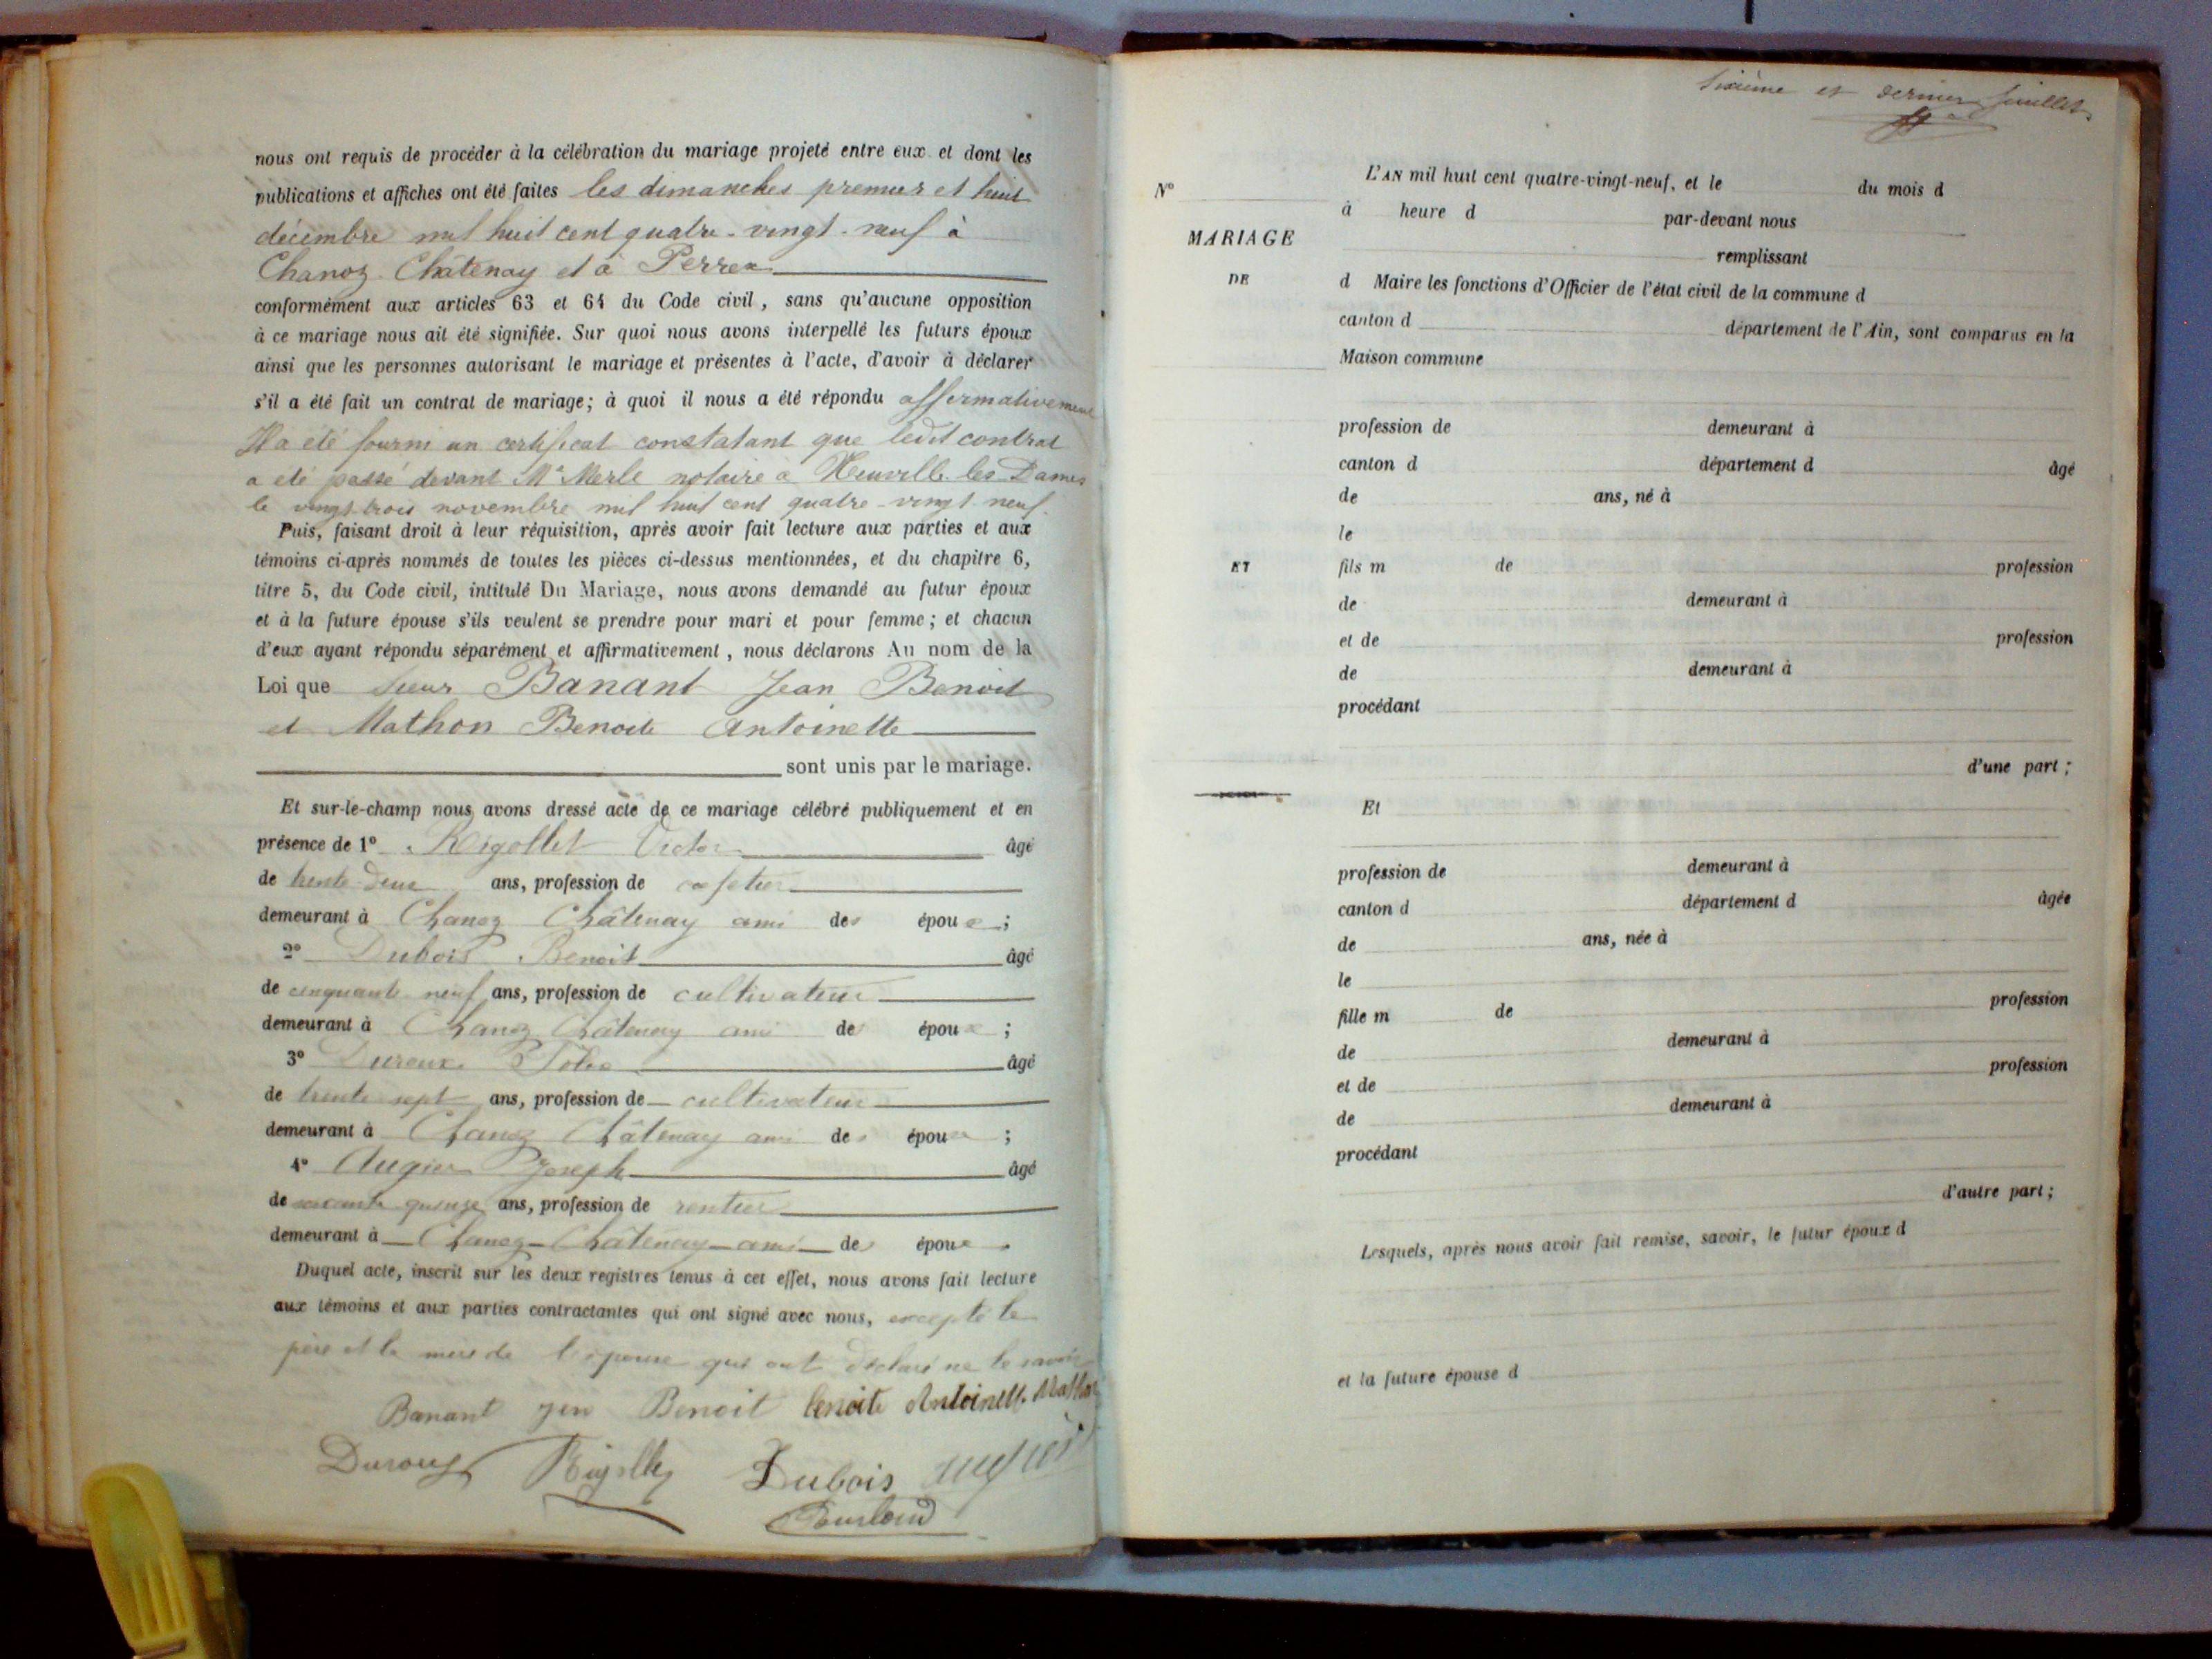 nous ont requis de procéder à la célébration du mariage projeté entre eux et dont les
publications et affiches ont été faites les dimanches premier et huit
décembre mil huit cent quatre-vingt-neuf à
Chanoz-Châtenay et à Perrex
conformément aux articles 63 et 64 du Code civil, sans qu'aucune opposition
à ce mariage nous ait été signifiée. Sur quoi nous avons interpellé les futurs époux
ainsi que les personnes autorisant le mariage et présentes à l'acte, d'avoir à déclarer
s'il a été fait un contrat de mariage; à quoi il nous a été répondu affirmativement
Il a été fourni un certificat constatant que ledit contrat
a été passé devant Me Merle notaire à Neuville les Dames
le vingt trois novembre mil huit cent quatre-vingt neuf.
Puis, faisant droit à leur réquisition, après avoir fait lecture aux parties et aux
témoins ci-après nommés de toutes les pièces ci-dessus mentionnées, et du chapitre 6,
titre 5, du Code civil, intitulé Du Mariage, nous avons demandé au futur époux
et à la future épouse s'ils veulent se prendre pour mari et pour femme; et chacun
d'eux ayant répondu séparément et affirmativement, nous déclarons Au nom de la
Loi que sieur Banant Jean Benoit
et Mathon Benoite Antoinette
sont unis par le mariage.
Et sur-le-champ nous avons dressé acte de ce mariage célébré publiquement et en
présence de 1° Rigollet Victor âgé
de trente deux ans, profession de cafetier
demeurant à Chanoz Châtenay ami des époux;
2° Dubois Benoit âgé
de cinquante neuf ans, profession de cultivateur
demeurant à Chanoz Châtenay ami des époux;
3° Duroux âgé
de trente sept ans, profession de cultivateur
demeurant à Chanoz Châtenay ami des époux;
4° Augier Joseph âgé
de soixante quinze ans, profession de rentier
demeurant à Chanoz-Châtenay ami des époux.
Duquel acte, inscrit sur les deux registres tenus à cet effet, nous avons fait lecture
aux témoins et aux parties contractantes qui ont signé avec nous, excepté le
père et la mère de l'épouse qui ont déclaré ne le savoir
Banant jen Benoit benoite Antoinette Mathon
Duroux Rigollet Dubois
Sixième et dernier feuillet
N°
MARIAGE
DE
ET
L'AN mil huit cent quatre-vingt-neuf, et le du mois d
à heure d par-devant nous
remplissant
d Maire les fonctions d'Officier de l'état civil de la commune d
canton d département de l'Ain, sont comparus en la
Maison commune
profession de demeurant à
canton d département d âgé
de ans, né à
le
fils m de profession
de demeurant à
et de profession
de demeurant à
procédant
d'une part;
Et
profession de demeurant à
canton d département d âgée
de ans, née à
le
fille m de profession
de demeurant à
et de profession
de demeurant à
procédant
d'autre part;
Lesquels, après nous avoir fait remise, savoir, le futur époux d
et la future épouse d